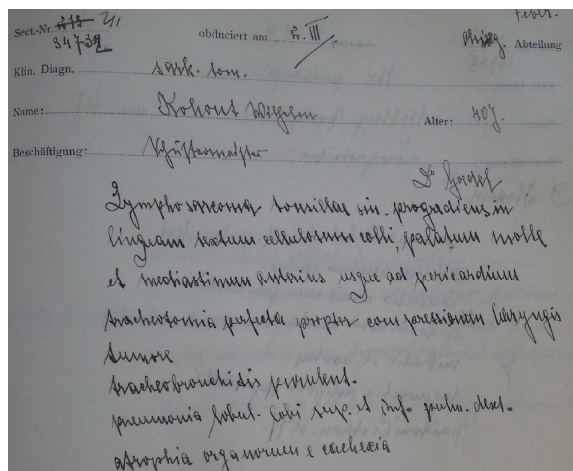 Febr.
Sect.-Nr.
34732
obduciert am III
chirurg. Abteilung
Klin. Diagn. sark. tons.
Name: Kohout Wilhelm Alter: 40 J.
Beschäftigung: Schustermeister
Dr
Lymphosarcoma tonsillae sin. progrediens in
linguam textum cellulosum colli, palatum molle
et mediastinum anterius usque ad pericardium
tracheotomia perfecta propter compressionem laryngis
tumore
tracheobronchitis purulent.
pneumonia lobul. lobi sup. et inf. pulm. dext.
atrophia organorum e cachexia